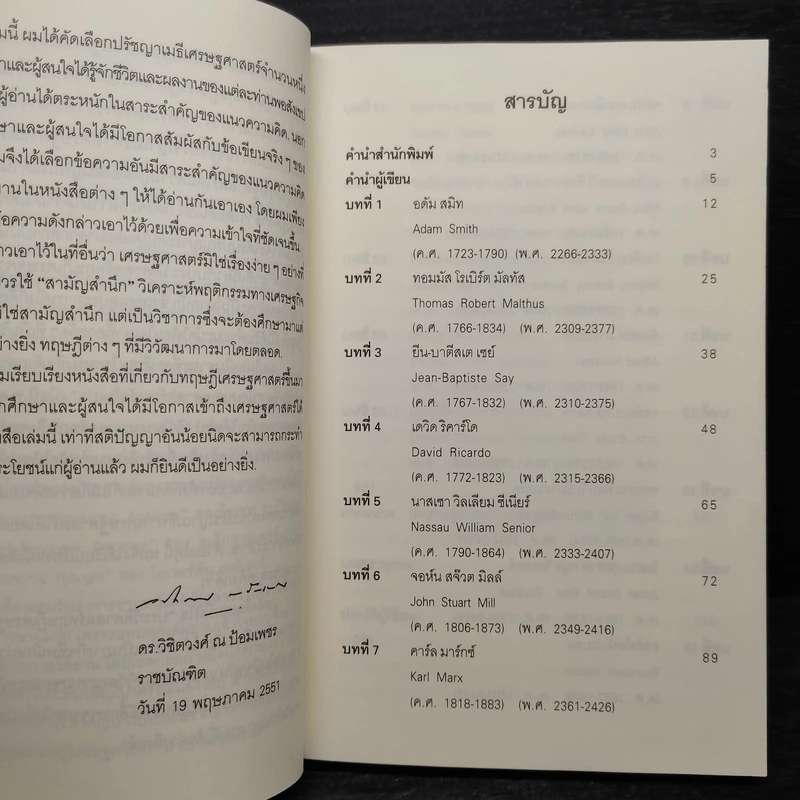 มนี้ ผมได้คัดเลือกปรัชญาเมธีเศรษฐศาสตร์จำนวนหนึ่ง
และผู้สนใจได้รู้จักชีวิตและผลงานของแต่ละท่านพอสังเขป
ผู้อ่านได้ตระหนักในสาระสำคัญของแนวความคิด. นอก
ษาและผู้สนใจได้มีโอกาสสัมผัสกับข้อเขียนจริง ๆ ของ
มจึงได้เลือกข้อความอันมีสาระสำคัญของแนวความคิด
านในหนังสือต่าง ๆ ให้ได้อ่านกันเอาเอง โดยผมเพียง
อความดังกล่าวเอาไว้ด้วยเพื่อความเข้าใจที่ชัดเจนขึ้น.
าวเอาไว้ในที่อื่นว่า เศรษฐศาสตร์มิใช่เรื่องง่าย ๆ อย่างที่
วรใช้ “สามัญสำนึก” วิเคราะห์พฤติกรรมทางเศรษฐกิจ
ใช่สามัญสำนึก แต่เป็นวิชาการซึ่งจะต้องศึกษามาแต่
างยิ่ง ทฤษฎีต่าง ๆ ที่มีวิวัฒนาการมาโดยตลอด.
มเรียบเรียงหนังสือที่เกี่ยวกับทฤษฎีเศรษฐศาสตร์ขึ้นมา
กศึกษาและผู้สนใจได้มีโอกาสเข้าถึงเศรษฐศาสตร์ได้
สือเล่มนี้ เท่าที่สติปัญญาอันน้อยนิดจะสามารถกระทำ
ระโยชน์แก่ผู้อ่านแล้ว ผมก็ยินดีเป็นอย่างยิ่ง.
ดร.วิชิตวงศ์ ณ ป้อมเพชร
ราชบัณฑิต
วันที่ 19 พฤษภาคม 2551
สารบัญ
คำนำสำนักพิมพ์ 3
คำนำผู้เขียน 5
บทที่ 1 อดัม สมิท 12
Adam Smith
(ค.ศ. 1723-1790) (พ.ศ. 2266-2333)
บทที่ 2 ทอมมัส โรเบิร์ต มัลทัส 25
Thomas Robert Malthus
(ค.ศ. 1766-1834) (พ.ศ. 2309-2377)
บทที่ 3 ยีน-บาตีสเต เซย์ 38
Jean-Baptiste Say
(ค.ศ. 1767-1832) (พ.ศ. 2310-2375)
บทที่ 4 เดวิด ริคาร์โด 48
David Ricardo
(ค.ศ. 1772-1823) (พ.ศ. 2315-2366)
บทที่ 5 นาสเซา วิลเลียม ซีเนียร์ 65
Nassau William Senior
(ค.ศ. 1790-1864) (พ.ศ. 2333-2407)
บทที่ 6 จอห์น สจ๊วต มิลล์ 72
John Stuart Mill
(ค.ศ. 1806-1873) (พ.ศ. 2349-2416)
บทที่ 7 คาร์ล มาร์กซ์ 89
Karl Marx
(ค.ศ. 1818-1883) (พ.ศ. 2361-2426)